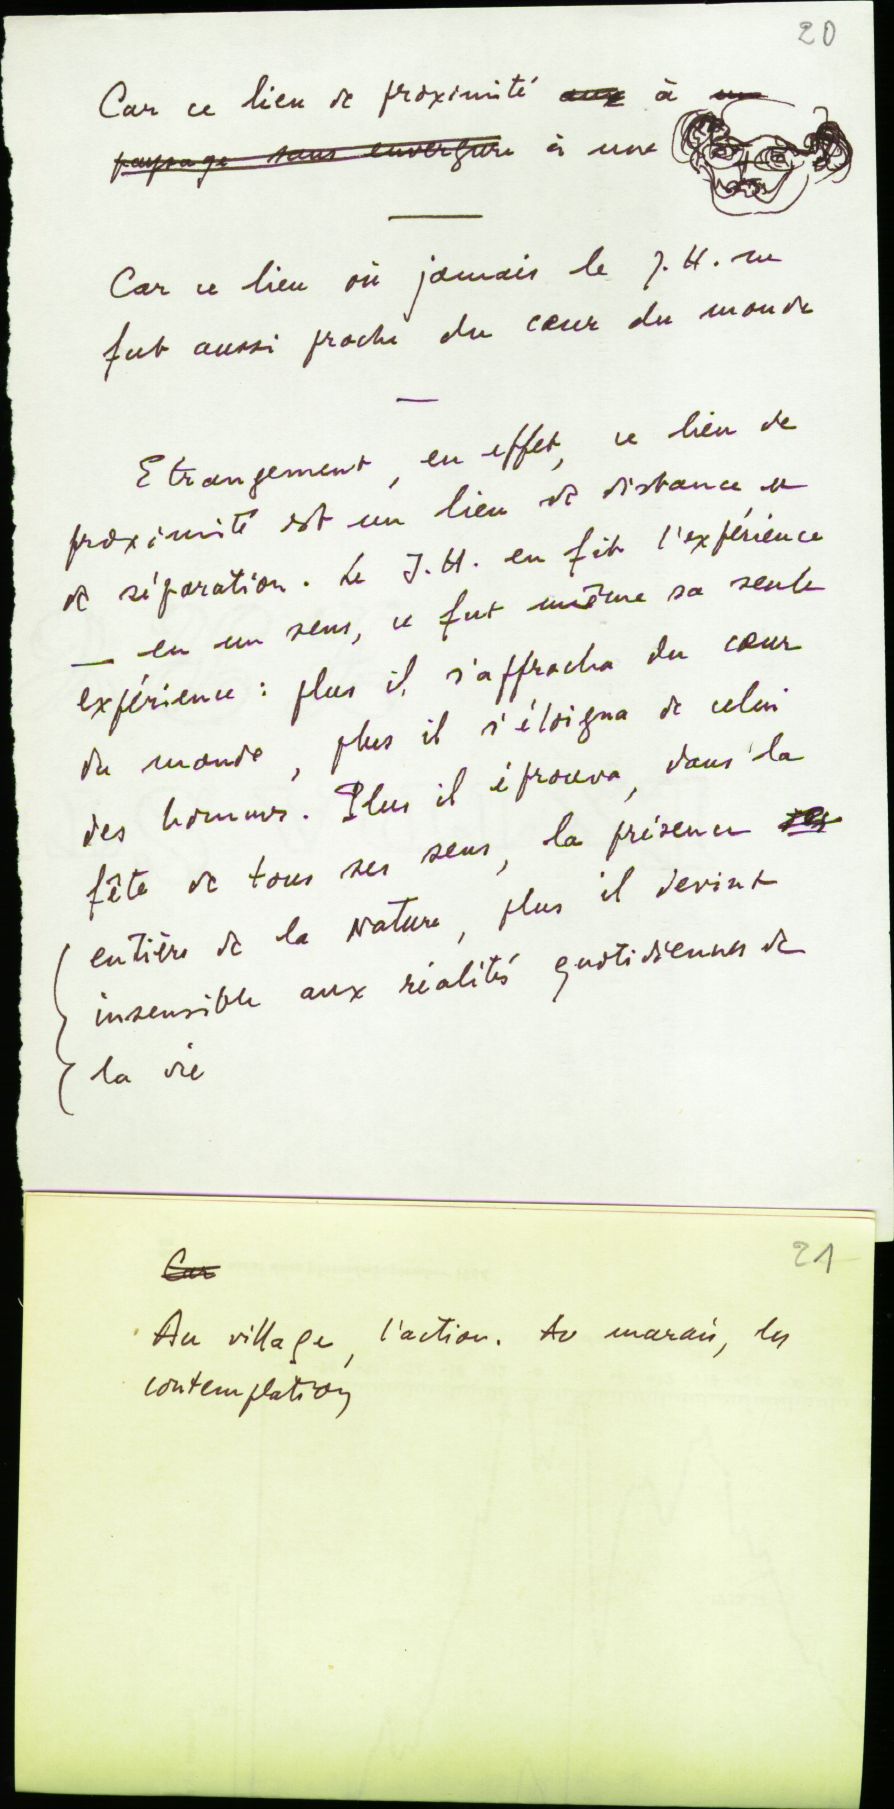 20
Car ce lieu de proximité aux à un
paysage sans envergure à une
Car ce lieu où jamais le J. H. ne
fut aussi proche du cœur du monde
Etrangement, en effet, ce lieu de
proximité est un lieu de distance et
de séparation. Le J. H. en fit l'expérience
— en un sens, ce fut même sa seule
expérience : plus il s'approcha du cœur
du monde, plus il s'éloigna de celui
des hommes. Plus il éprouva, dans la
fête de tous ses sens, la présence
entière de la Nature, plus il devint
insensible aux réalités quotidiennes de
la vie
21
Car
Au village, l'action. Au marais, la
contemplation